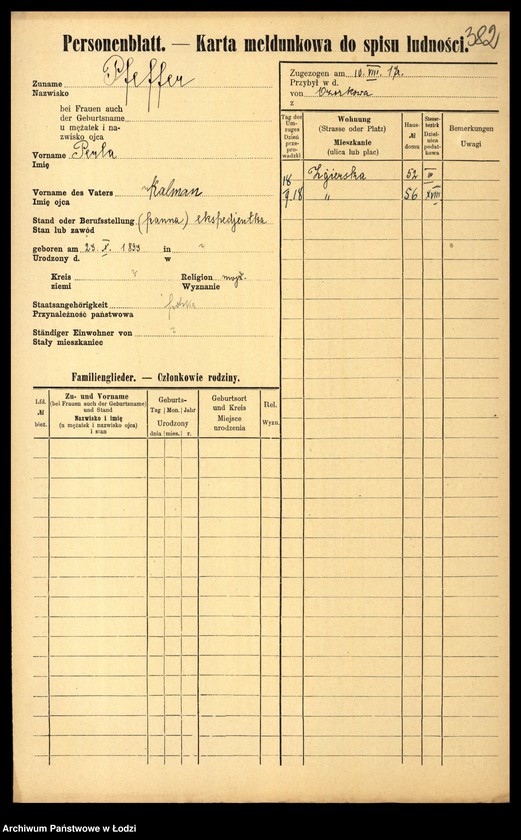 382
Personenblatt. — Karta meldunkowa do spisu ludności.
Zuname Pfeffer
Nazwisko
bei Frauen auch
der Geburtsname
u mężatek i na-
zwisko ojca
Vorname Perla
Imię
Vorname des Vaters Kalman
Imię ojca
Stand oder Berufsstellung (panna) ekspedjentka
Stan lub zawód
geboren am 23. X. in "
Urodzony d. w
Kreis Religion mojż.
ziemi Wyznanie
Staatsangehörigkeit
Przynależność państwowa
Ständiger Einwohner von
Stały mieszkaniec
Zugezogen am 10. VIII. 17.
Przybył w d.
von Ozorkowa
z
Tag des Um-zuges Dzień prze-prowadzki
Wohnung
(Strasse oder Platz)
Mieszkanie
(ulica lub plac)
Haus-
№
domu
Steuer-
bezirk
Dziel-
nica
podat-
kowa
Bemerkungen
Uwagi
Zgierska 52
18 " 56 XVIII
Familienglieder. — Członkowie rodziny.
Lfd.
№
bież.
Zu- und Vorname
(bei Frauen auch der Geburtsname)
und Stand
Nazwisko i imię
(u mężatek i nazwisko ojca)
i stan
Geburts-
Tag | Mon. | Jahr
Urodzony
dnia | mies. | r.
Geburtsort
und Kreis
Miejsce
urodzenia
Rel.
Wyzn.
Archiwum Państwowe w Łodzi